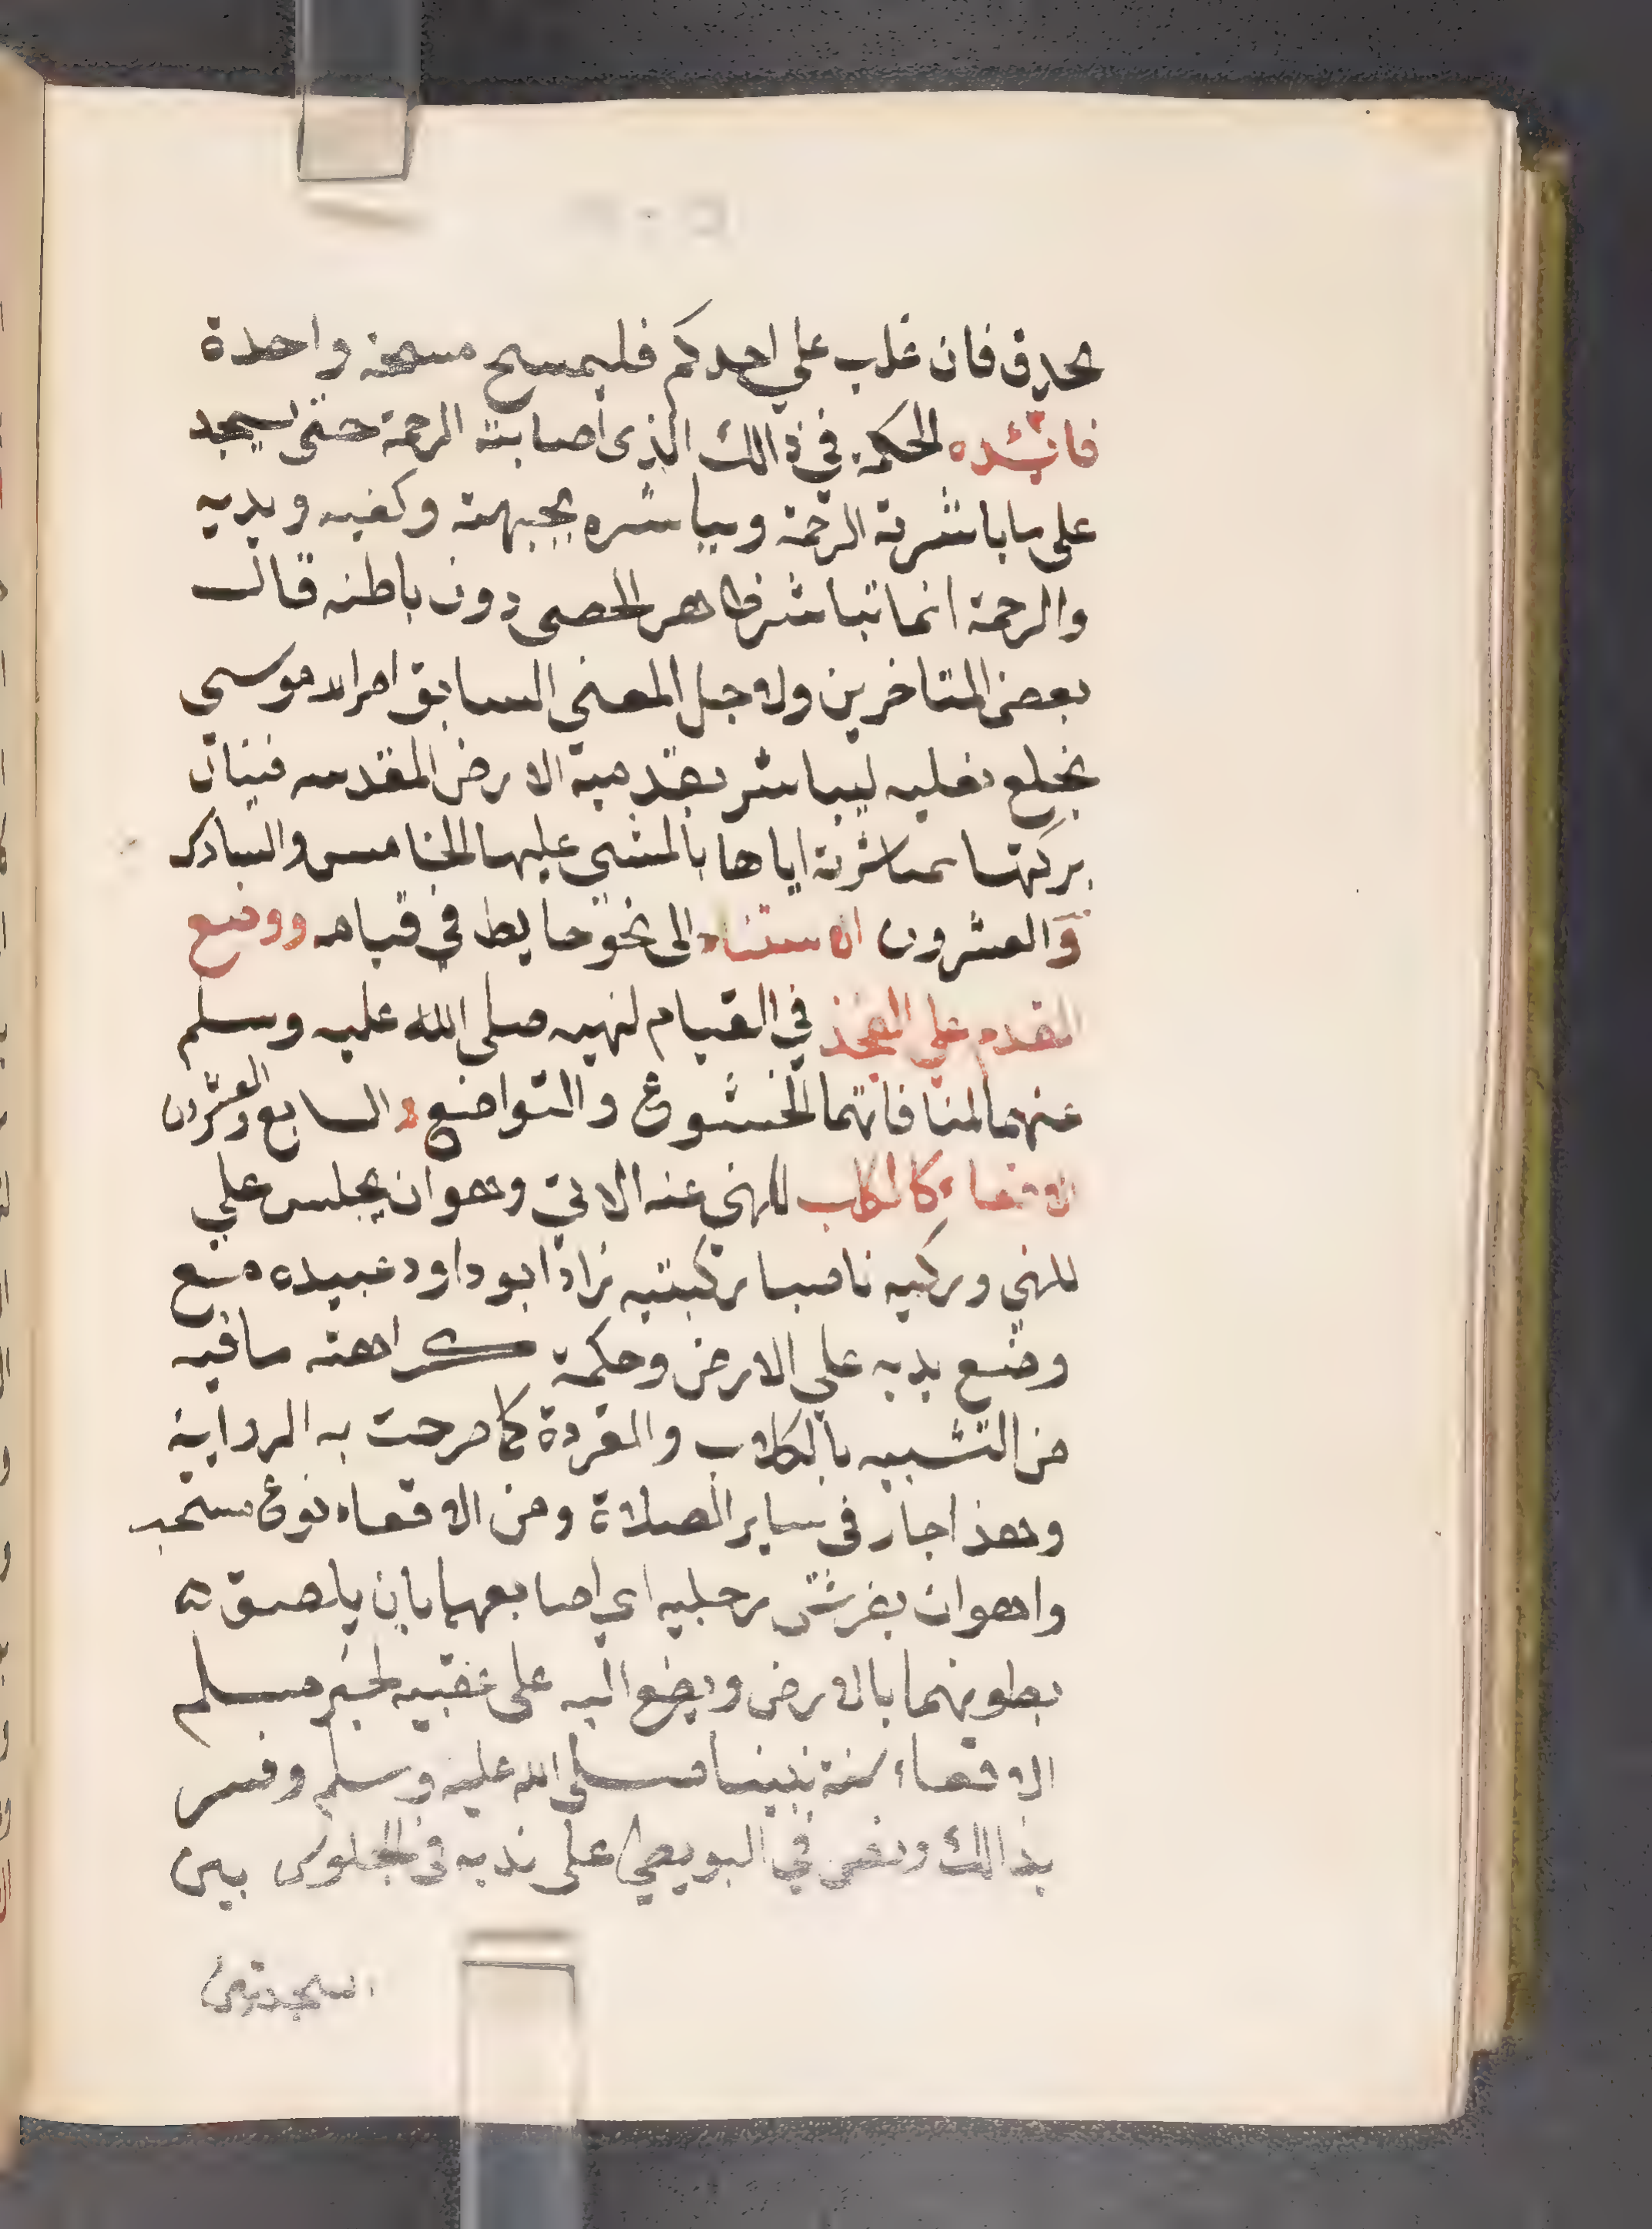 الحدق فان غلب علي احدكم فليمسح مسحة واحدة
فائده الحكمة في ذالك الذي اصابته الرحمة حتى يسجد
على ما باشرته الرحمة ويباشره بجبهته وكفيه ويديه
والرحمة انما تباشر ظاهر الحصى دون باطنه قال
بعض المتاخرين ولاجل المعني السابق امر الله موسي
بخلع نعليه ليباشر بقدميه الارض المقدسه فينال
بركتها بمباشرته اياها بالمشي عليها الخامس والسادس
والعشرون الاستناد الى نحو حايط في قيامه ووضع
القدم علي الفخذ في القيام لنهيه صلى الله عليه وسلم
عنهما لمنافاتهما الخشوع والتواضع والسابع والعشرون
الاقعاء كالكلاب للنهي عنه الاتي وهو ان يجلس علي
للنهي وركيه ناصبا ركبتيه زاد ابو داود عبيده مع
وضع يديه علي الارض وحكمة كراهته ما فيه
من التشبيه بالكلاب والقردة كما صرحت به الرواية
وهذا جار في ساير الصلاة ومن الاقعاء نوع مستحب
واهو ان يفرش رجليه اي اصابعهما بان يلصق
بطونهما بالارض ويضع اليه على عقبيه لخبر مسلم
الاقعاء سنة نبينا صلى الله عليه وسلم وفسر
بذالك ونص في البويطي على ندبه في الجلوس بين
السجدتين